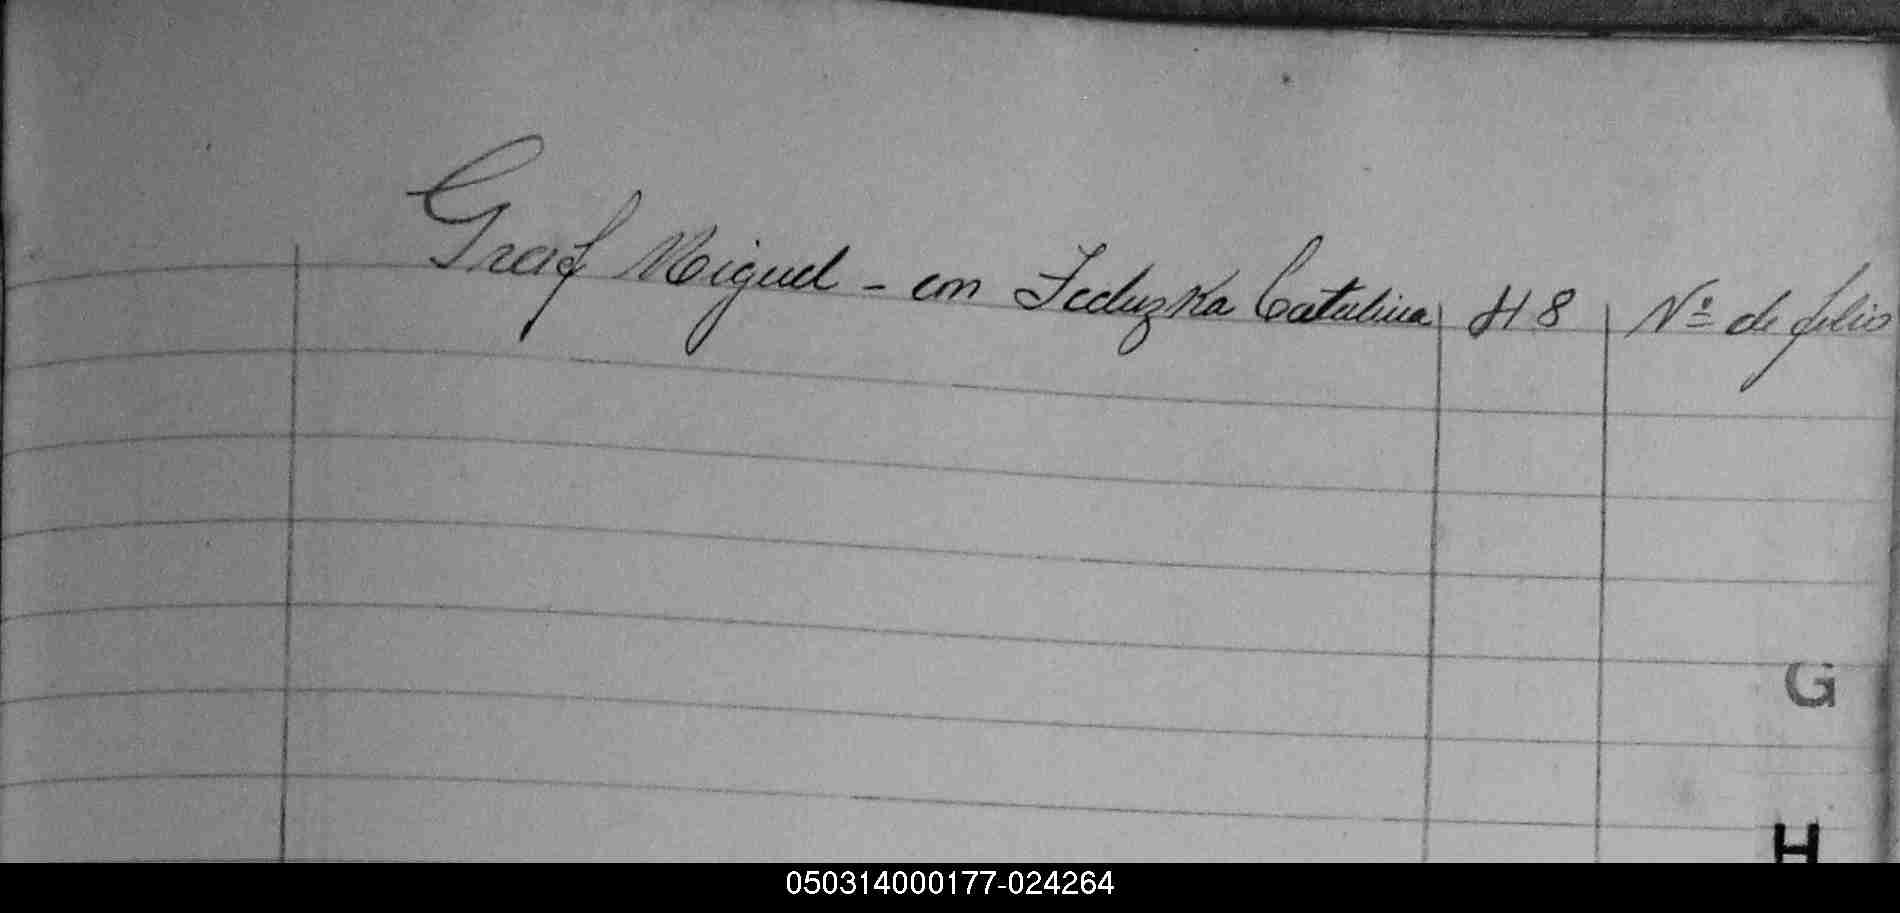 Graf Miguel - con Feduzka Catalina 48 Nº de folio
G
H
050314000177-024264